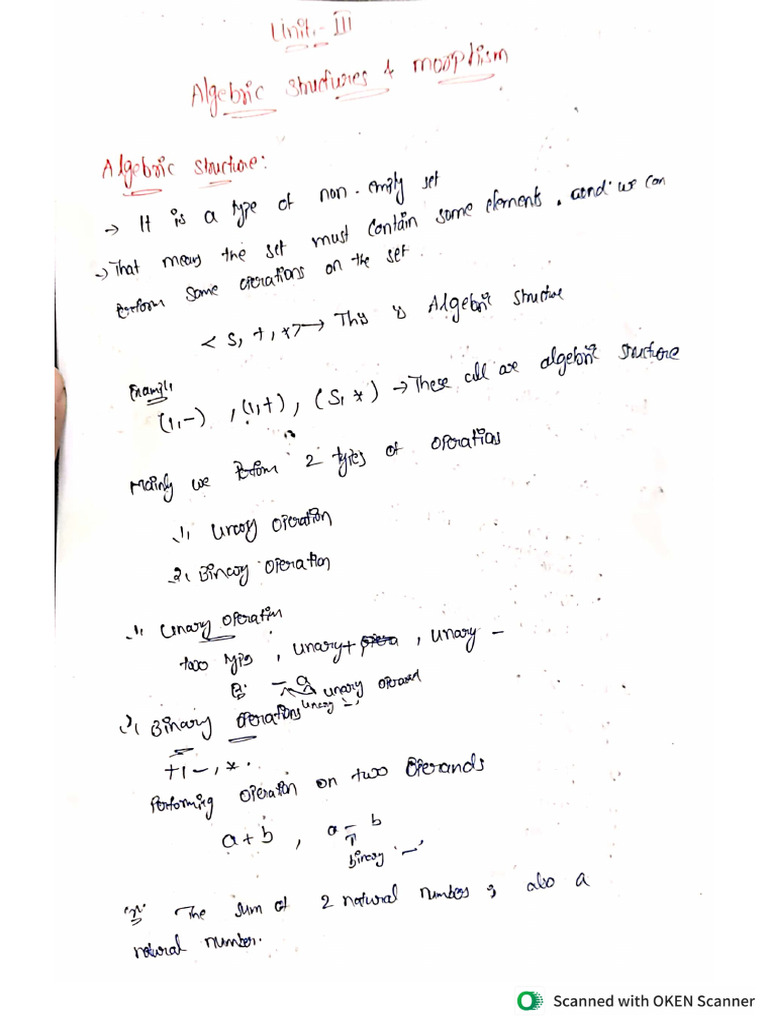 Unit - III
Algebric structures & morphism
Algebric structure:
→ It is a type of non-empty set
→ That means the set must contain some elements, and we can
perform some operations on the set.
< S, +, *> → This is Algebric structure
Example
(1, -) , (1, +), (S, *) → These all are algebric structure
Mainly we perform 2 types of operations
1, Unary operation
2, Binary operation
1, Unary operation
two types, unary +, unary -
Eg: - a
unary operand
unary -
2, Binary operations
+, -, *.
Performing operation on two operands
a + b , a - b
binary '-'
Ex: The sum of 2 natural numbers is also a
natural number.
Scanned with OKEN Scanner